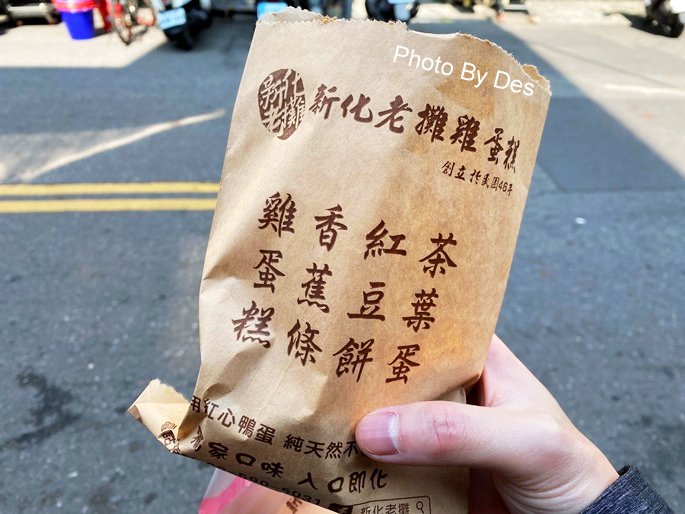 Photo By Des
新化老攤
新化老攤雞蛋糕
創立於民國46年
雞蛋糕
香蕉條
紅豆餅
茶葉蛋
用紅心鴨蛋 純天然不
家口味 入口即化
5031
新化老攤